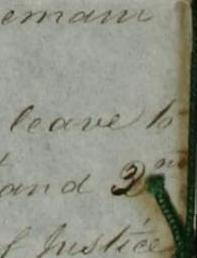 emain
leave to
and 2nd
of Justice